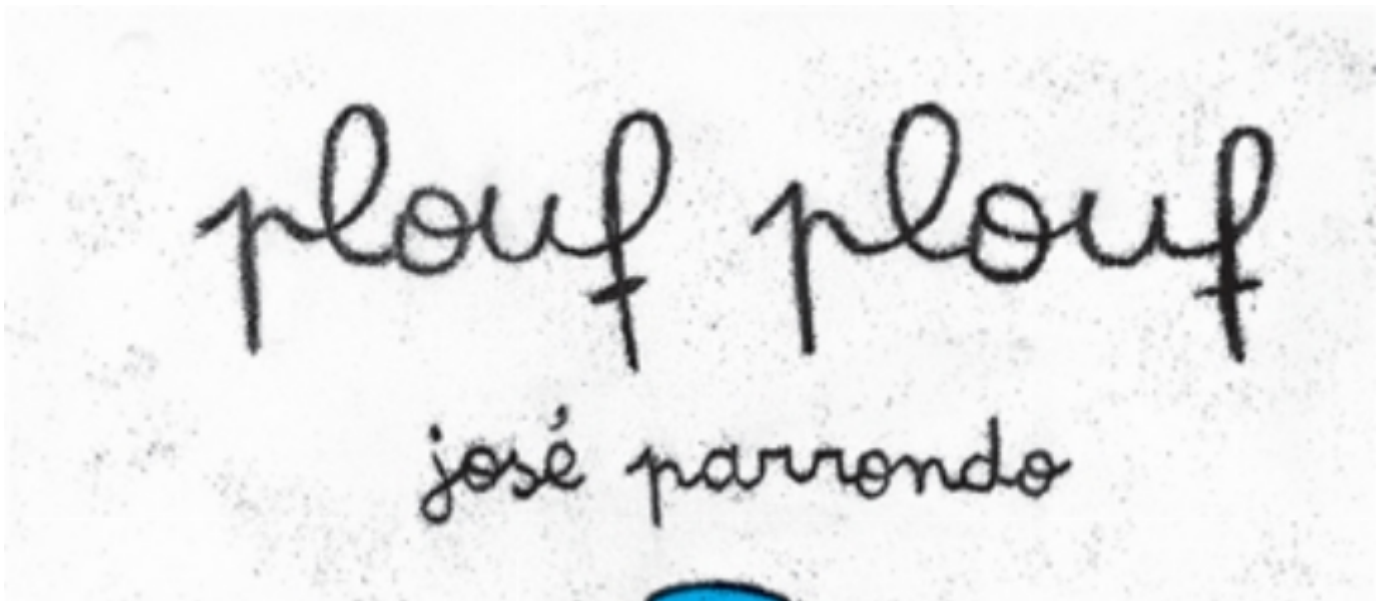 plouf plouf
josé parrondo